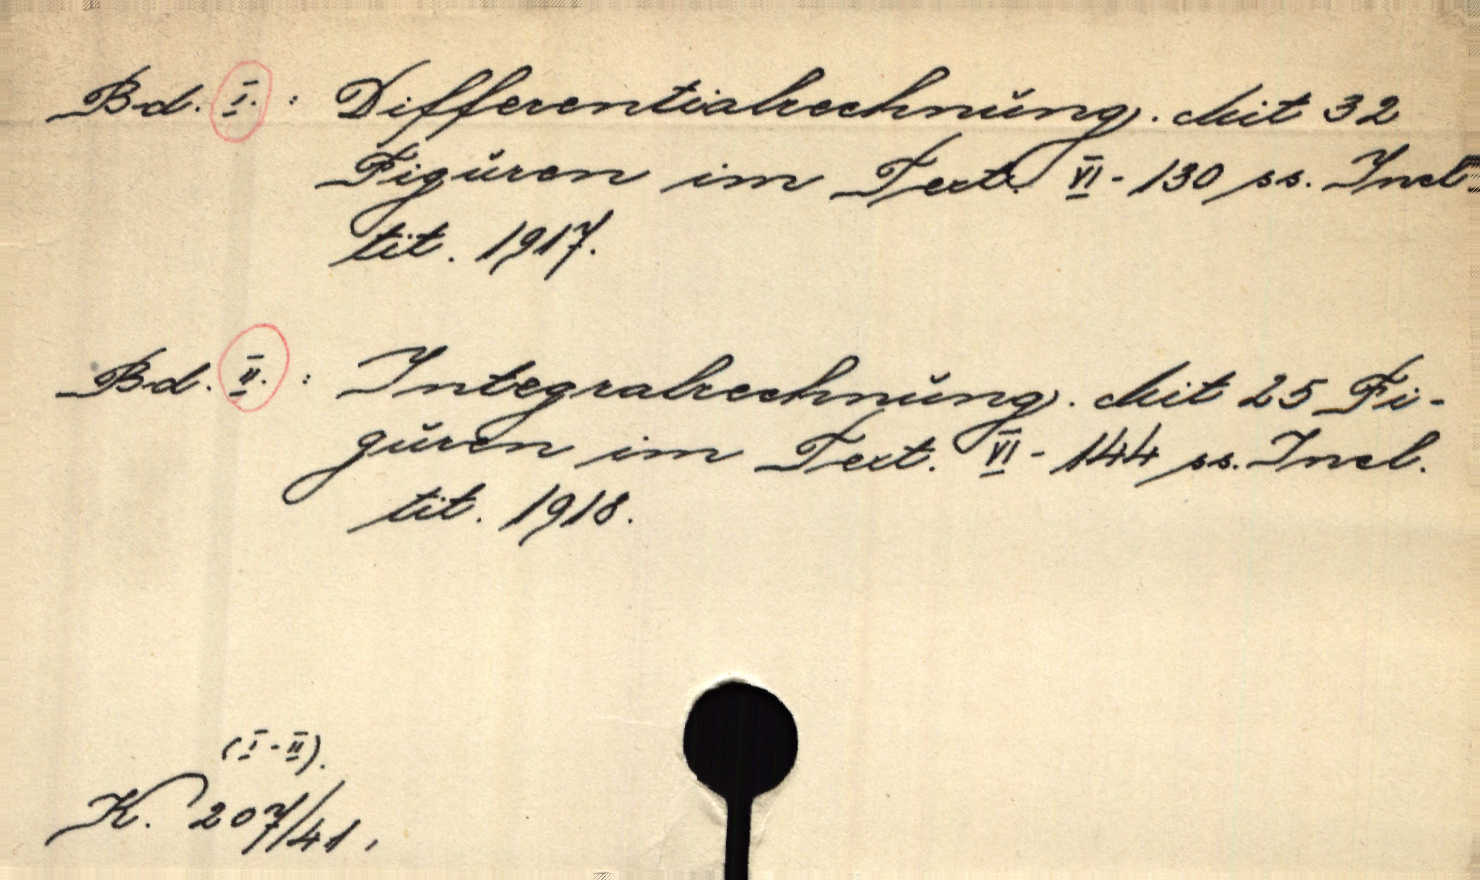 Bd. I. : Differentialrechnŭng. Mit 32
Figŭren im Text. VI - 130 ss. Incl.
tit. 1917.
Bd. II. : Integralrechnŭng. Mit 25 Fi-
gŭren im Text. VI - 144 ss. Incl.
tit. 1918.
(I - II).
K. 207/41.